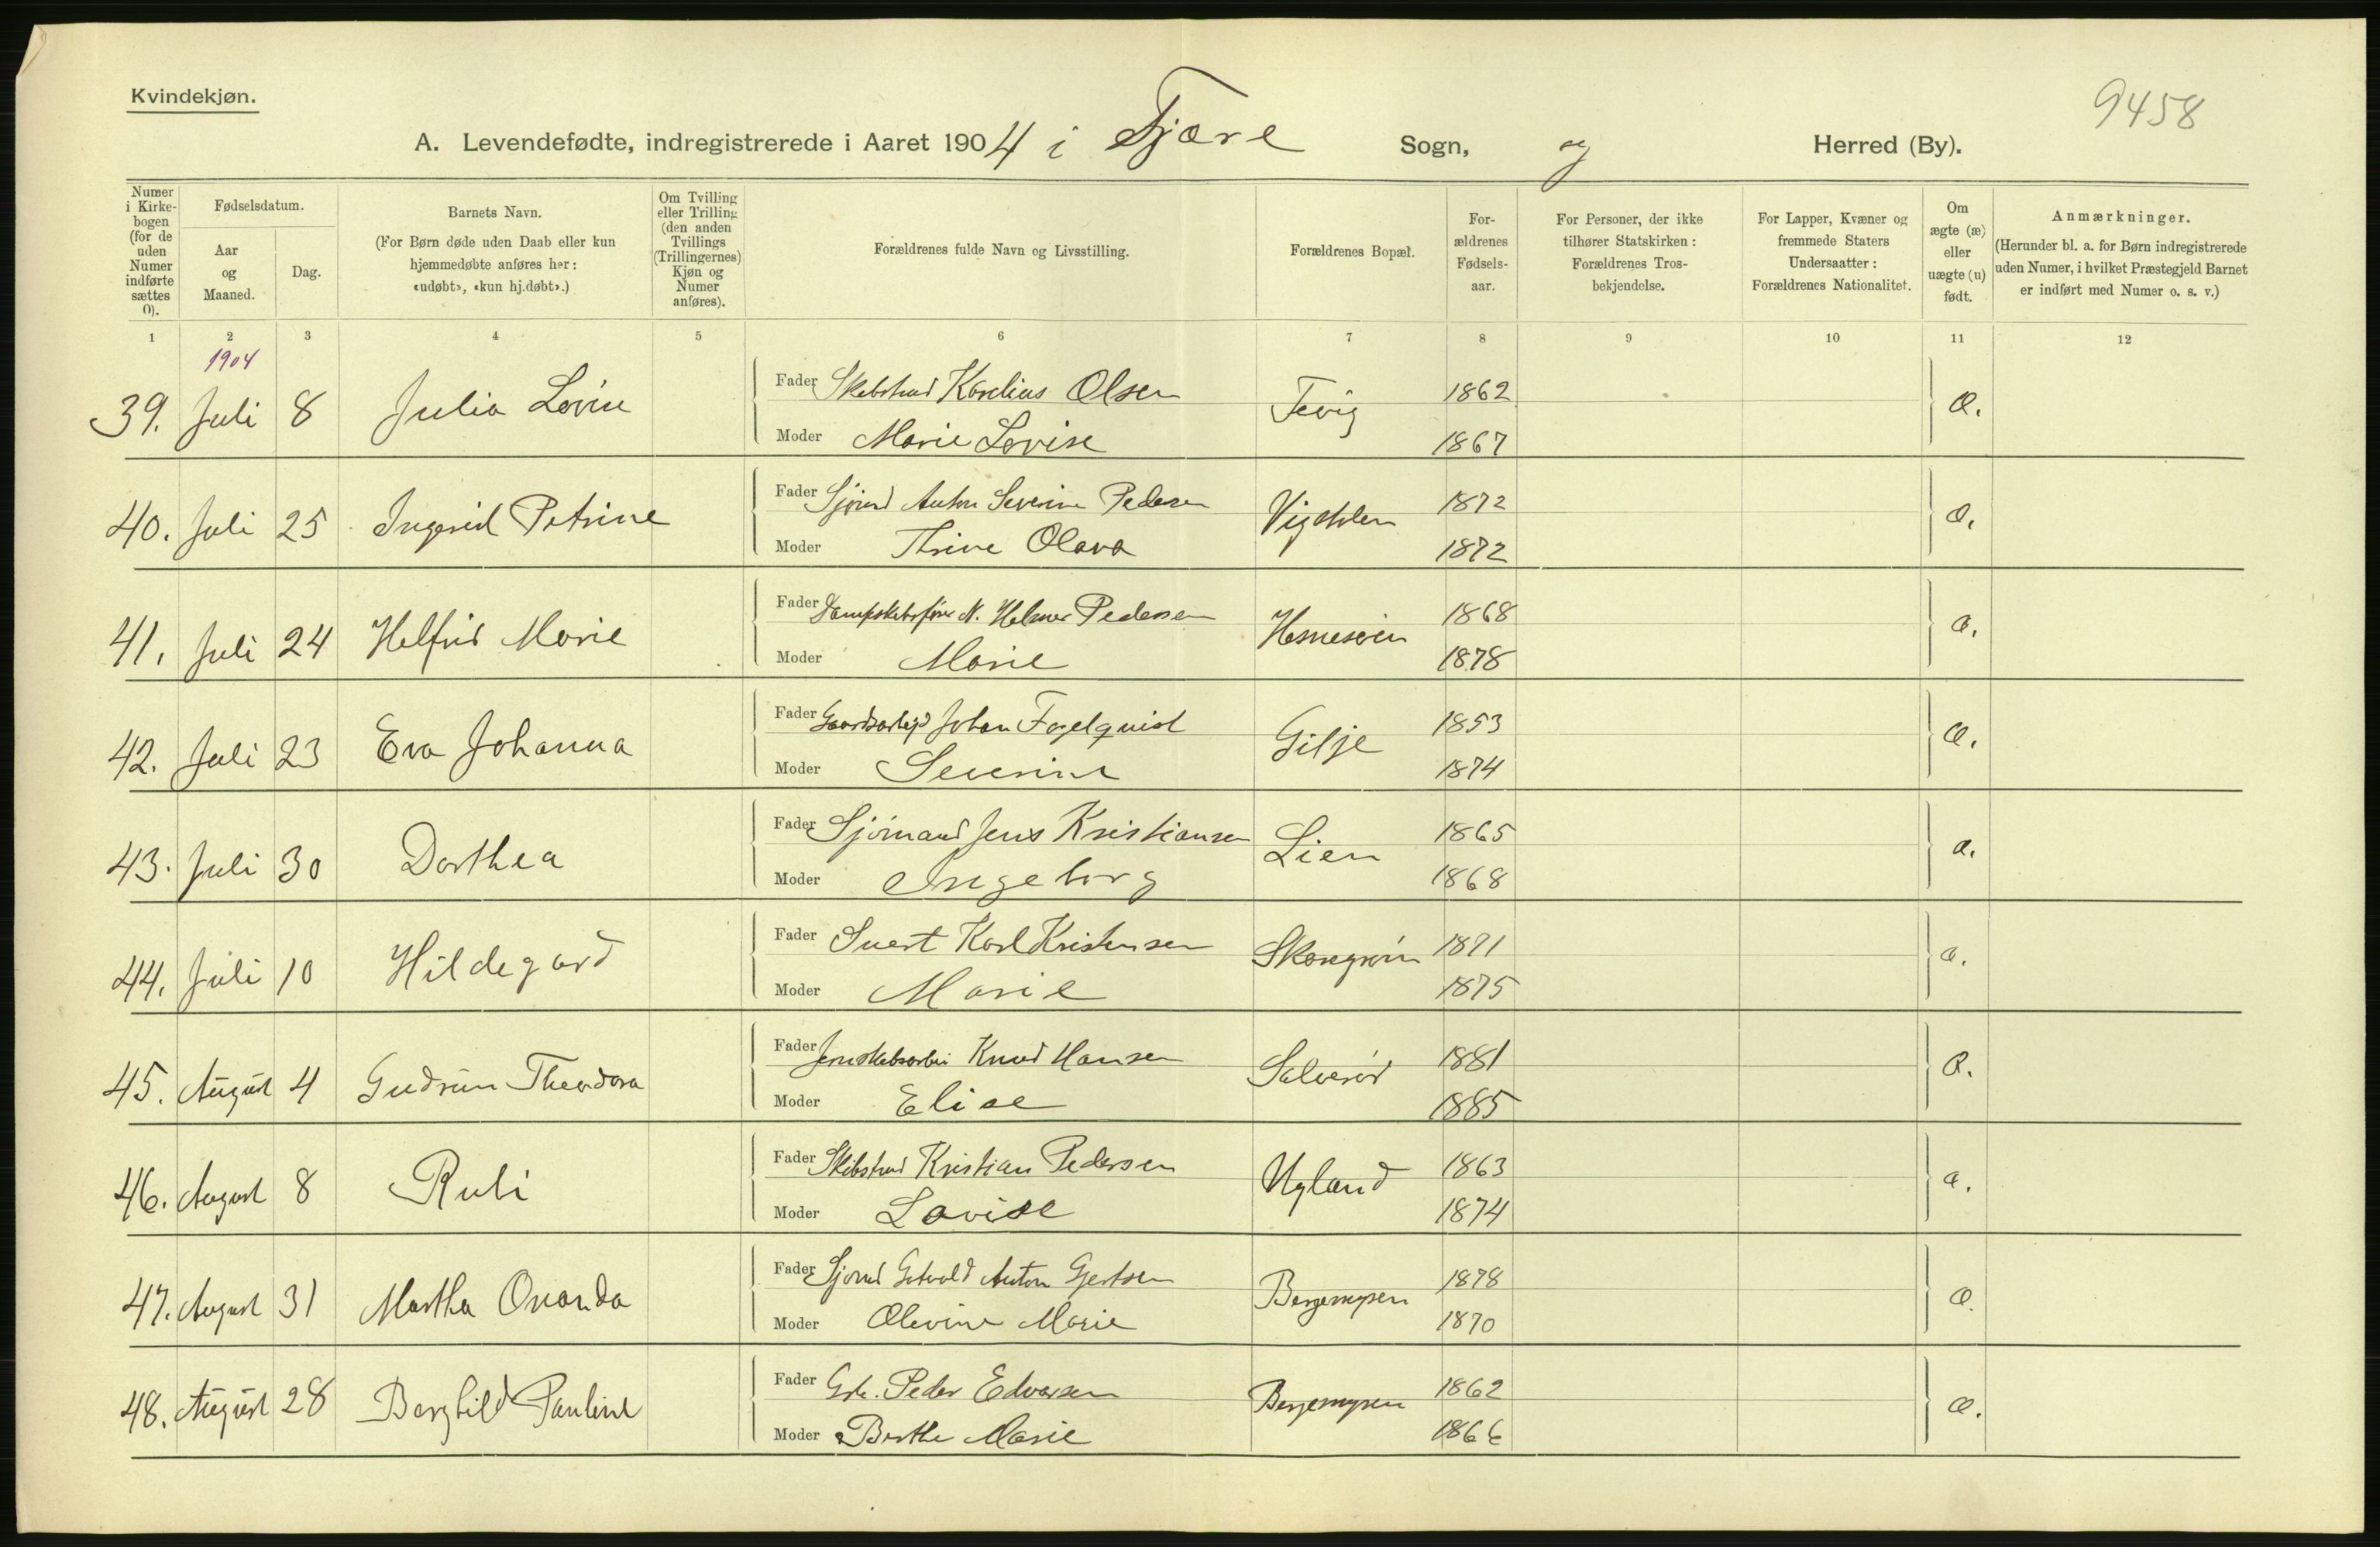 Kvindekjøn.
9458
A. Levendefødte, indregistrerede i Aaret 1904 i Fjære Sogn, og Herred (By).
Numer i Kirkebogen (for de uden Numer indførte sættes 0).
Fødselsdatum.
Aar og Maaned.
Dag.
Barnets Navn.
(For Børn døde uden Daab eller kun hjemmedøbte anføres her: «udøbt», «kun hj.døbt».)
Om Tvilling eller Trilling (den anden Tvillings (Trillingernes) Kjøn og Numer anføres).
Forældrenes fulde Navn og Livsstilling.
Forældrenes Bopæl.
Forældrenes Fødselsaar.
For Personer, der ikke tilhører Statskirken: Forældrenes Trosbekjendelse.
For Lapper, Kvæner og fremmede Staters Undersaatter: Forældrenes Nationalitet.
Om ægte (æ) eller uægte (u) født.
Anmærkninger.
(Herunder bl. a. for Børn indregistrerede uden Numer, i hvilket Præstegjeld Barnet er indført med Numer o. s. v.)
1 2 3 4 5 6 7 8 9 10 11 12
1904
39. Juli 8 Julia Fader Karelius Olsen Fevig 1862 æ.
Moder Marie Lovise 1867
40. Juli 25 Ingerid Petrine Fader Sjømd Anton Severin Pedersen 1872 æ.
Moder Trine Olava 1872
41. Juli 24 Helfrid Marie Fader Dampskibsfører N. Helmer Pedersen 1868 æ.
Moder Marie 1878
42. Juli 23 Eva Johanna Fader Johan Fagelquist Gilje 1853 æ.
Moder Severine 1874
43. Juli 30 Dorthea Fader Sjømand Jens Kristiansen Lien 1865 æ.
Moder Ingeborg 1868
44. Juli 10 Hildegard Fader Karl Kristensen 1871 æ.
Moder Marie 1875
45. August 4 Gudrun Theodora Fader Knud Hansen 1881 æ.
Moder Elise 1885
46. August 8 Rubi Fader Kristian Pedersen Ugland 1863 æ.
Moder Lovise 1874
47. August 31 Martha Ovanda Fader Sjømd Gotvald Anton Gjertsen Bergemyren 1878 æ.
Moder Olevine Marie 1870
48. August 28 Borghild Pauline Fader Peder Edvarsen Bergemyren 1862 æ.
Moder Berthe Marie 1866